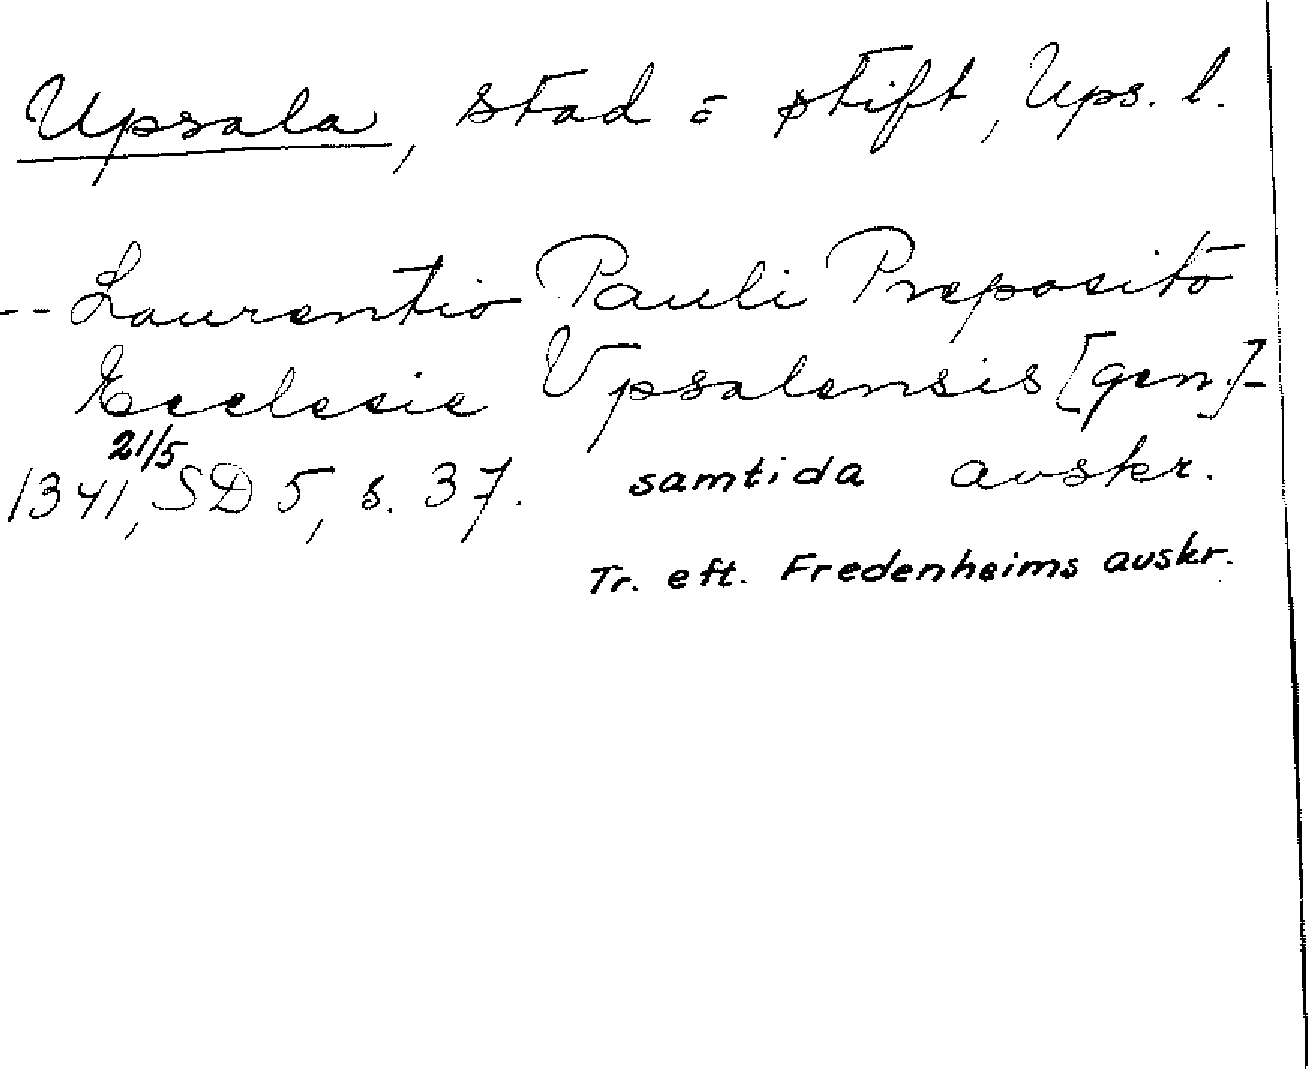 Upsala, stad o stift, Ups. l.
-- Laurentio Pauli Preposito
Ecclesie Vpsalensis [gen.] -
1341 21/5, SD 5, s. 37. samtida avskr.
Tr. eft. Fredenheims avskr.